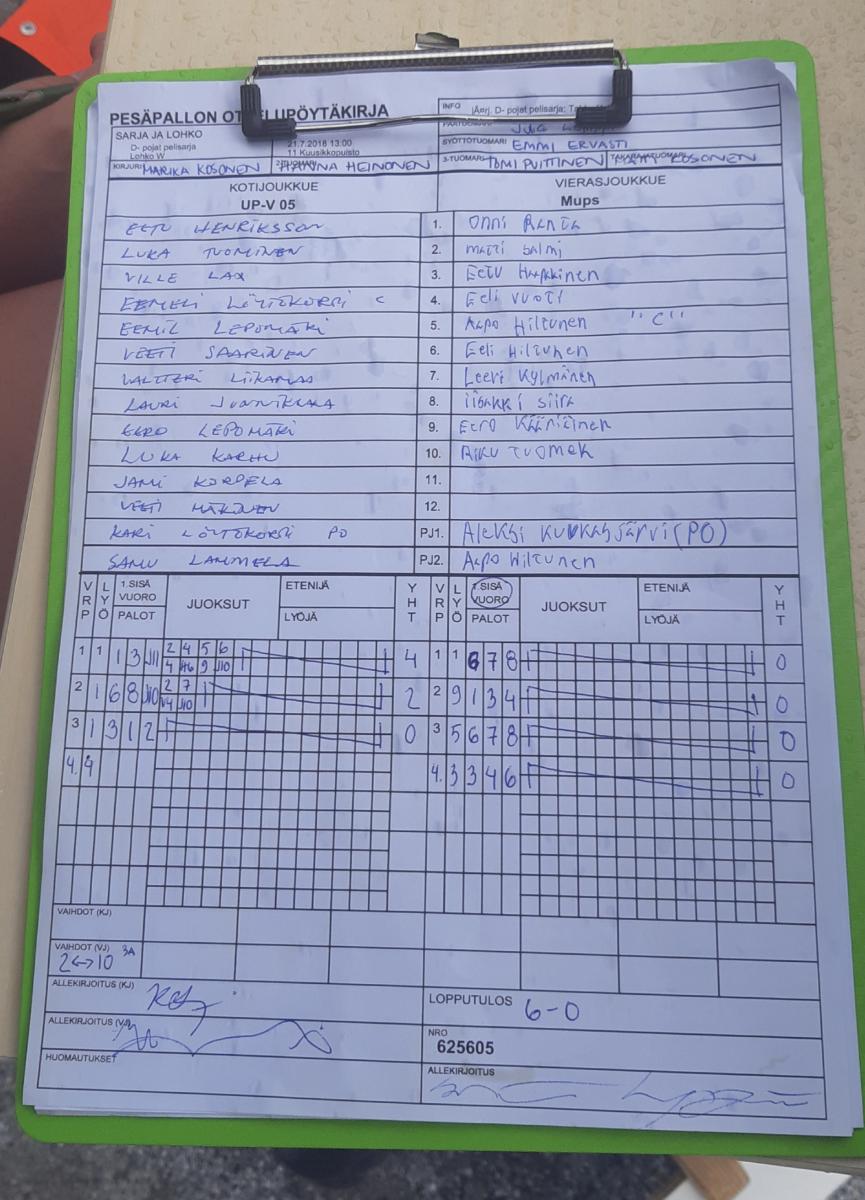 PESÄPALLON OTTELUPÖYTÄKIRJA
INFO
SARJA JA LOHKO
D- pojat pelisarja
Lohko W
21.7.2018 13:00
11 Kuusikkopuisto
SYÖTTÖTUOMARI EMMI ERVASTI
KIRJURI MARIKA KOSONEN HANNA HEINONEN 3-TUOMARI TOMI PUITTINEN KOSONEN
KOTIJOUKKUE VIERASJOUKKUE
UP-V 05 Mups
EETU HENRIKSSON 1. Onni Ranta
LUKA TUOMINEN 2. Matti Salmi
VILLE LAX 3. Eetu Hupkkinen
EEMELI LÖYTÖKORPI C 4. Eeli Vuoti
EEMIL LEPOMÄKI 5. Aapo Hiltunen "C"
VEETI SAARINEN 6. Eeli Hiltunen
VALTTERI 7. Leevi Kylmänen
LAURI 8. iisakki Siira
EERO LEPOMÄKI 9. Eero Kääriäinen
LUKA KARHU 10. Riku
JAMI KORPELA 11.
VEETI MÄKINEN 12.
KARI LÖYTÖKORPI PO PJ1. Aleksi Kuukasjärvi (PO)
SAMU LAMMELA PJ2. Aapo Hiltunen
VRP LYÖ 1.SISÄ VUORO PALOT JUOKSUT ETENIJÄ LYÖJÄ YHT VRP LYÖ 1.SISÄ VUORO PALOT JUOKSUT ETENIJÄ LYÖJÄ YHT
1 1 1 3 J11 2 4 5 6 4 1 1 6 7 8 0
4 9 J10
2 1 6 8 J10 2 7 2 2 9 1 3 4 0
V4 J10
3 1 3 1 2 0 3 5 6 7 8 0
4. 4 4. 3 3 4 6 0
VAIHDOT (KJ)
VAIHDOT (VJ)
2↔10 3A
ALLEKIRJOITUS (KJ) LOPPUTULOS 6-0
ALLEKIRJOITUS (VJ) NRO
625605
HUOMAUTUKSET ALLEKIRJOITUS